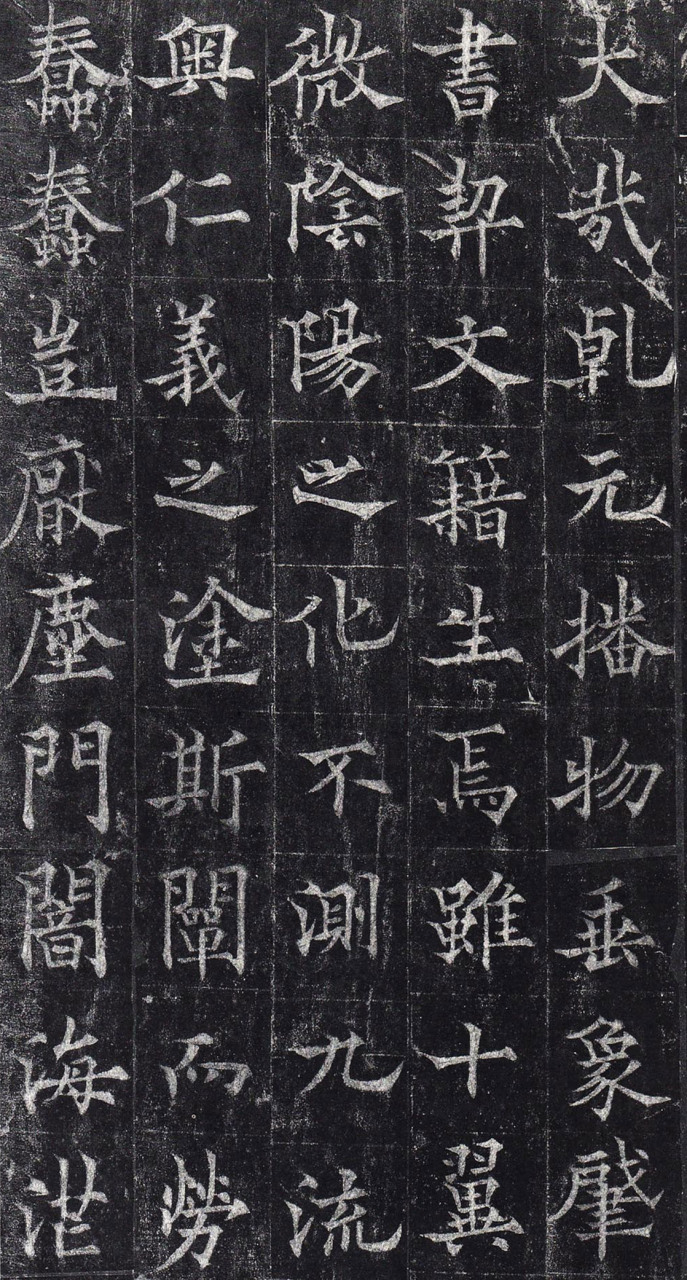 大哉乾元播物垂象肇
書契文籍生焉雖十翼
微陰陽之化不測九流
奧仁義之塗斯闡而勞
蠢蠢豈厭塵門闇海茫